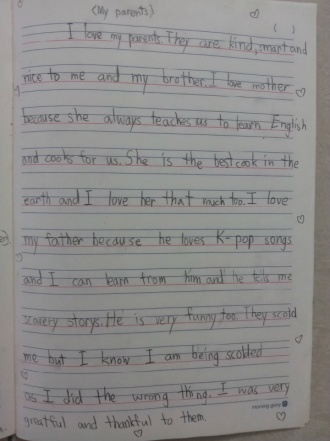 (My parents)
( )
I love my parents. They are kind, smart and
nice to me and my brother. I love mother
because she always teaches us to learn English
and cooks for us. She is the best cook in the
earth and I love her that much too. I love
my father because he loves K-pop songs
and I can learn from him and he tells me
scarery storys. He is very funny too. They scold
me but I know I am being scolded
as I did the wrong thing. I was very
greatful and thankful to them.